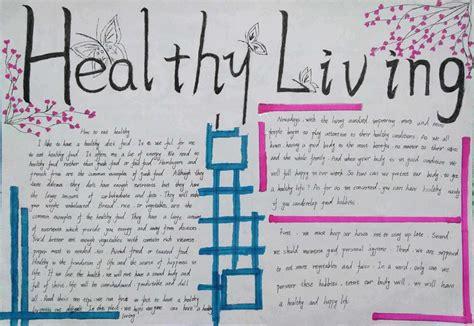 Healthy Living
How to eat healthy
I like to have a healthy diet food. It is useful for me
to eat healthy food. It offers me a lot of energy. We need to
healthy food rather than junk food or fast food. Hamburgers and
french fries are the common examples of junk food. Although they
taste delicious, they don't have enough nutrients but they have
a large amount of carbohydrate and fats. They will make
your weight unbalanced. Bread, rice or vegetables are the
common examples of the healthy food. They have a large amount
of nutrients which provide you energy and away from diseases
You'd better eat enough vegetables with contain rich vitamins
proper meat is needed too. Avoid fried or roasted food.
Healthy is the foundation of life and the source of happiness in
life. If we lose the health we will not have a sound body and
full of shine, life will be
all. And there are tips we can find to have a healthy
In this part, we hope everyone can have a healthy
living!
Nowadays with the living standard improving more and more
people begin to play attention to their healthy conditions. As we all
know, having a good body is the most benefits no matter to their own
and the whole family. And when your body is in good condition we
will full happy to our work. So how can we protect our body, to get
a healthy life? As far as I'm concerned, you can have healthy easily
if you can develop good habbies.
First, we must keep our hours not to stay up late. Second
we should maintain good personal hygiene. Third, we are supposed
to eat more vegetables and fruits. In a word, only can we
persver these habbies, every our body will, we will have
a healthy and happy life.